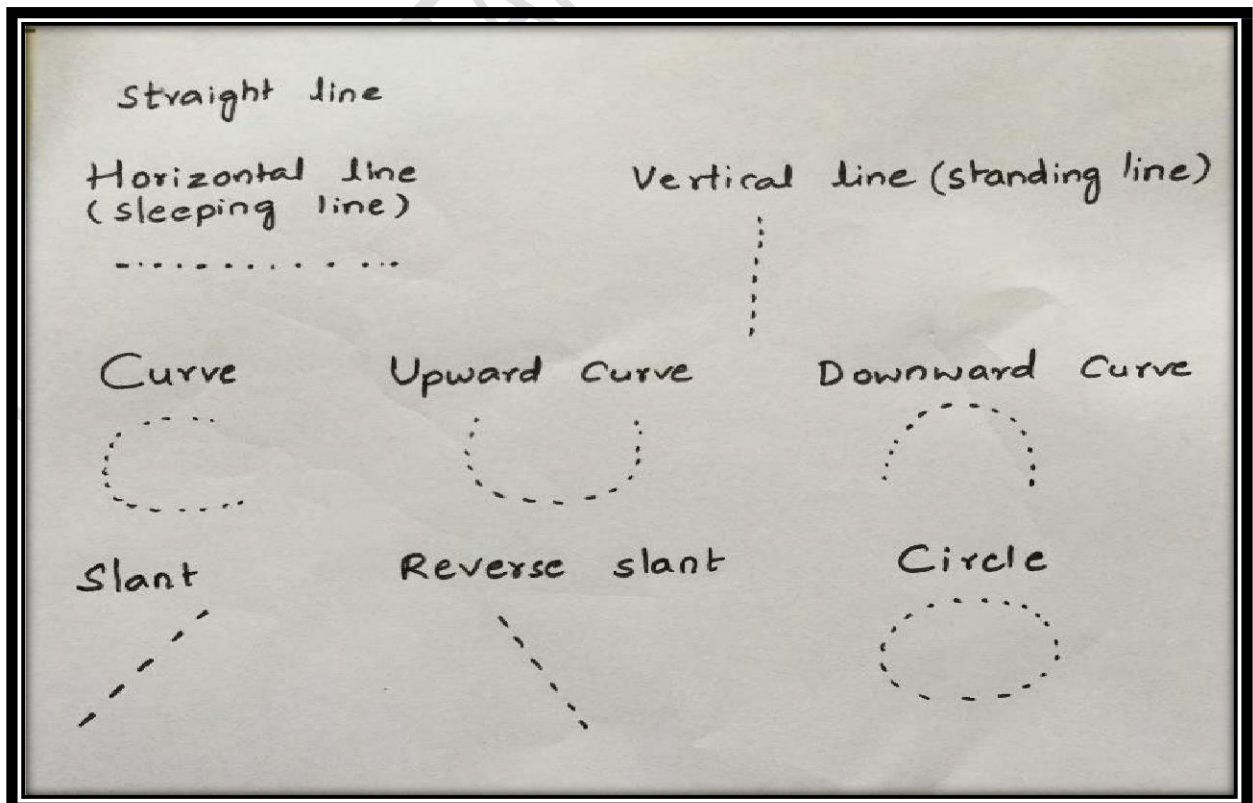 Straight line
Horizontal line
(sleeping line)
Vertical line (standing line)
Curve
Upward Curve
Downward Curve
Slant
Reverse slant
Circle